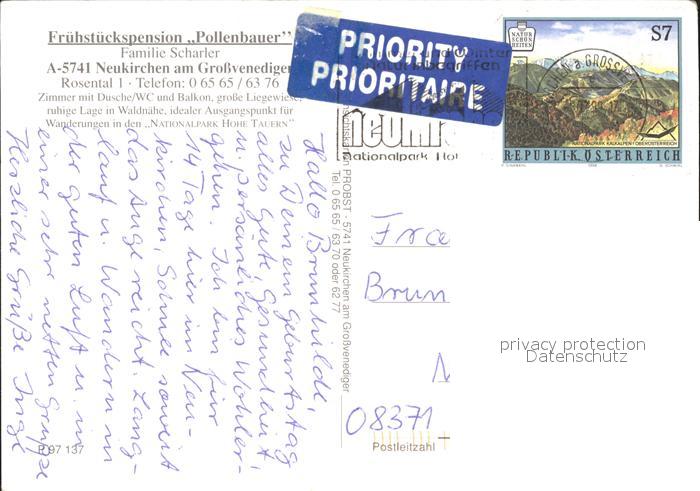 Frühstückspension „Pollenbauer”
Familie Scharler
A-5741 Neukirchen am Großvenediger
Rosental 1 · Telefon: 0 65 65 / 63 76
Zimmer mit Dusche/WC und Balkon, große Liegewiese,
ruhige Lage in Waldnähe, idealer Ausgangspunkt für
Wanderungen in den „NATIONALPARK HOHE TAUERN”
Hallo Brunhilde!
zu Deinem Geburtstag
alles Gute, Gesundheit
u. persönliches Wohler-
gehen. Ich bin für
14 Tage hier in Neu-
kirchen, Schnee soweit
das Auge reicht. Lang-
lauf u. Wandern in
der guten Luft u. in
einer sehr netten Gruppe
Herzliche Grüße Inge
P 97 137
PROBST - 5741 Neukirchen am Großvenediger
Tel. 0 65 65 / 63 70 oder 62 77
PRIORITY
PRIORITAIRE
Nationalpark Ho
NATUR
SCHÖN
HEITEN
S7
NATIONALPARK KALKALPEN / OBERÖSTERREICH
REPUBLIK ÖSTERREICH
Brun
08371
Postleitzahl
privacy protection
Datenschutz